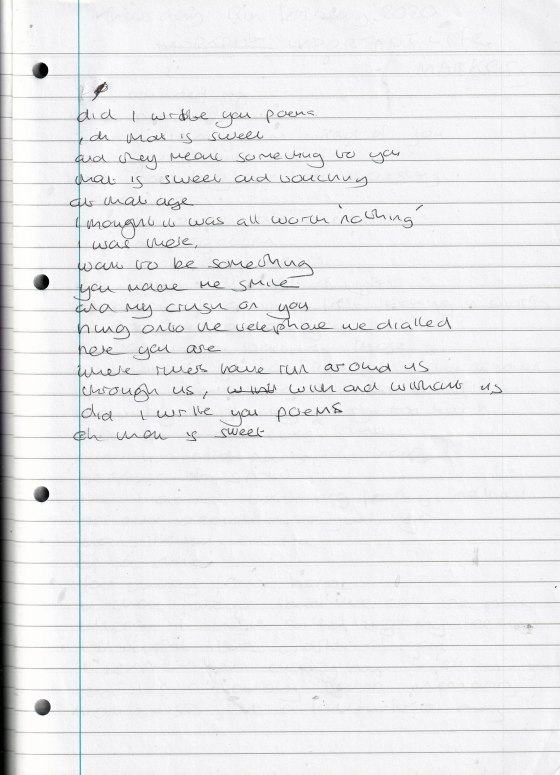 did I write you poems
, oh that is sweet
and they meant something to you
that is sweet and touching
at that age
I thought it was all worth 'nothing'
I was there,
want to be something
you made me smile
and my crush on you
hung onto the telephone we dialled
here you are
where rivers have run around us
through us, with and without us
did I write you poems
oh that is sweet